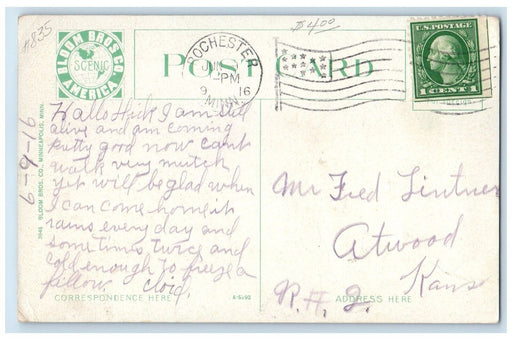 #835
$4.00
BLOOM BROS CO.
SCENIC
AMERICA
POST CARD
ROCHESTER
JUN
PM
9 16
MINN.
U.S. POSTAGE
1 CENT 1
6-9-16
BLOOM BROS. CO., MINNEAPOLIS, MINN.
Hallo I am still
alive and am coming
pretty good now cant
walk very mutch
yet will be glad when
I can come home it
rains every day and
some times twice and
cold enough to freeze a
fellow.
Mr Fred Lintner
Atwood
Kans
R.#2.
CORRESPONDENCE HERE
ADDRESS HERE